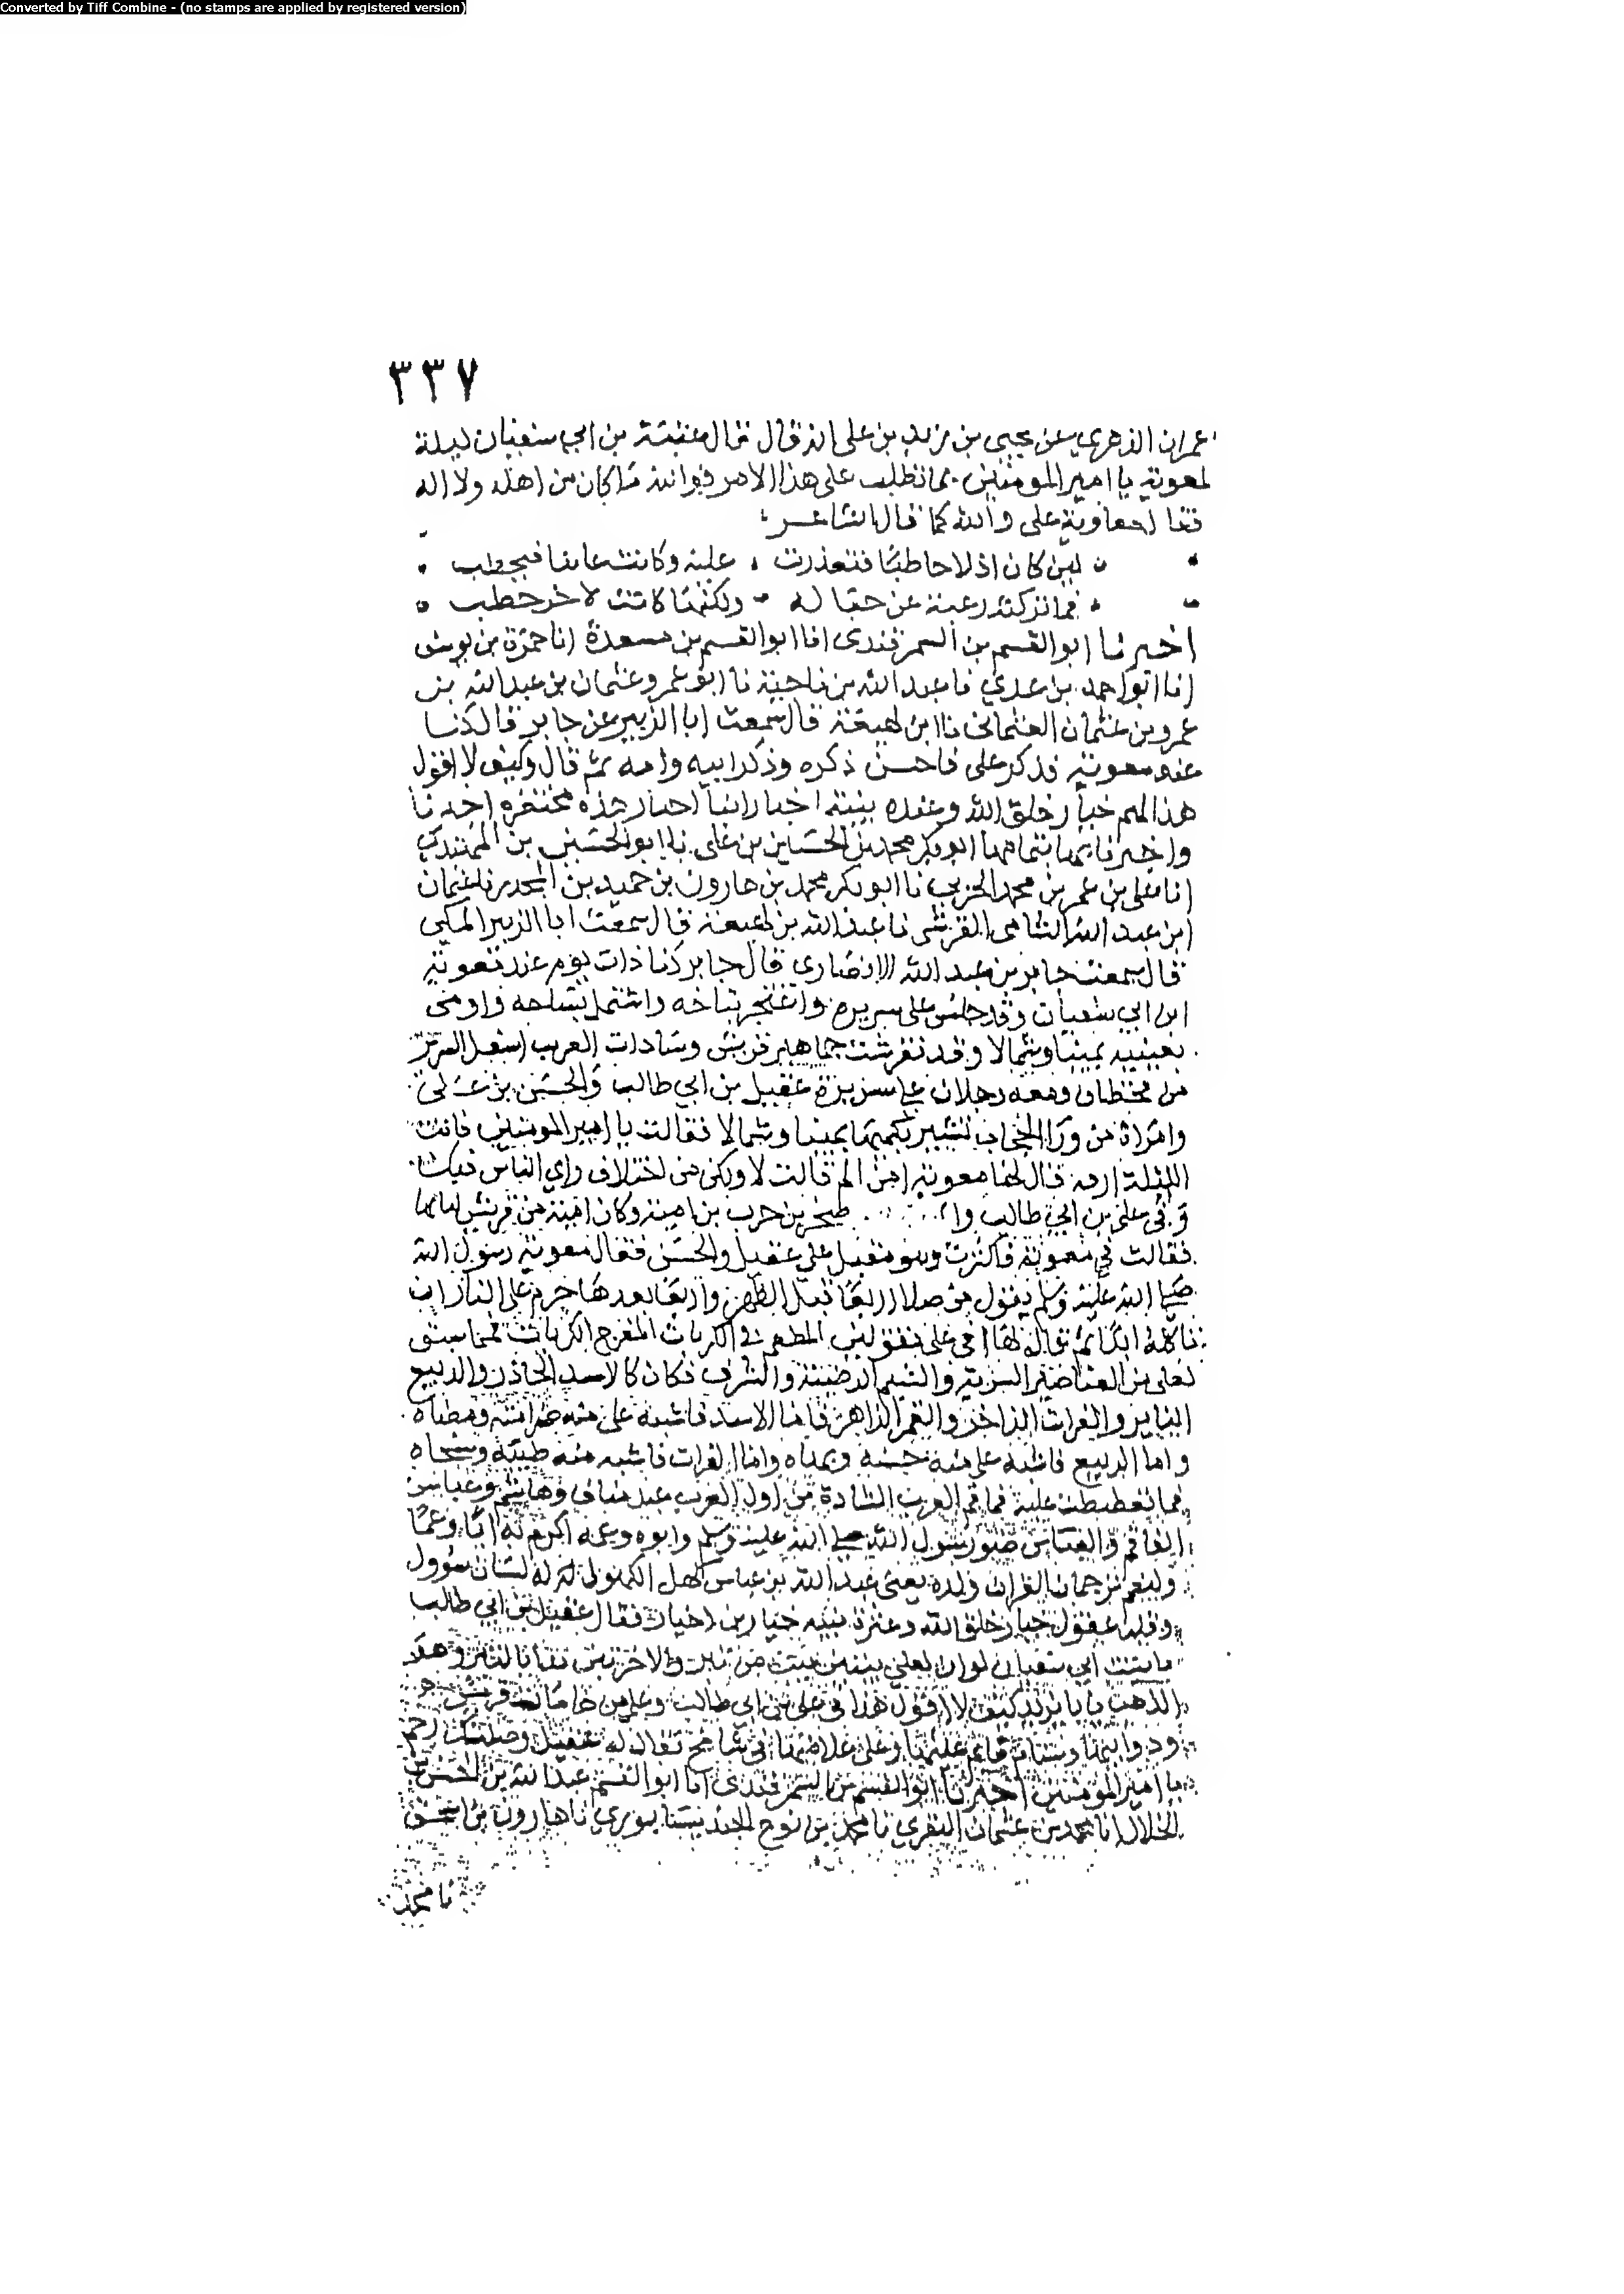 Converted by Tiff Combine - (no stamps are applied by registered version)
٣٣٧
عمران الزهري عن يحيى بن زيد بن علي انه قال قال عتبة بن ابي سفيان ليلة
لمعوية يا امير المومنين بما تطلب على هذا الامر فوالله ما كان من اهله ولا اله
فقال معاوية على والله كما قال الشاعر
لين كان اذلا خاطبا فتعذرت عليه وكانت فيخطب
فما تركته رغبة عن حباله ولكنها كانت لاخر خطب
اخبرنا ابو القسم بن السمرقندي انا ابو القسم بن مسعدة انا حمزة بن يوسف
انا ابو احمد بن عدي نا عبد الله بن ناجية نا ابو عمرو عثمان بن عبد الله بن
عمرو بن عثمان العثماني نا ابن لهيعة قال سمعت ابا الزبير عن جابر قال كنا
عند معوية فذكر علي فاحسن ذكره وذكر ابيه وامه ثم قال وكيف لا اقول
هذا لهم خيار خلق الله وعنده بنيه اخيار ابنا اخيار هذه مختصرة اخبرنا
واخبرنا بها بتمامها ابو بكر محمد بن الحسين بن علي نا ابو الحسين بن المهتدي
انا علي بن عمر بن محمد الحربي نا ابو بكر محمد بن هارون بن حميد بن المجدر نا عثمان
ابن عبد الله الشامي القرشي نا عبد الله بن لهيعة قال سمعت ابا الزبير المكي
قال سمعت جابر بن عبد الله الانصاري قال جابر كنا ذات يوم عند معوية
ابن ابي سفيان وقد جلس على سريره واعتجر بتاجه واشتمل بساجه واومى
بعينيه يمينا وشمالا وقد تفرشت جماهير قريش وسادات العرب اسفل السرير
من قحطان ومعه رجلان على سريره عقيل بن ابي طالب والحسن بن علي
وامراة من ورا الحجاب تشير بكمها يمينا وشمالا فقالت يا امير المومنين فاتت
الليلة ارقة قال لها معوية امن الم قالت لا ولكن من اختلاف راي الناس فيك
وفي علي بن ابي طالب صخر بن حرب بن امية وكان امية من قريش لبابها
فقالت في معوية فاكثرت وهو مقبل على عقيل والحسن فقال معوية رسول الله
صلى الله عليه وسلم يقول من صلا اربعا قبل الظهر واربعا بعدها حرم على النار ان
تاكله ابدا ثم قال لها افي علي تقولين المطعم في الكربات المفرج الكربات مع ما سبق
لعلي من العناصر السرية والشيم الرضية والشرف فكان كالاسد الحاذر والربيع
الناير والفرات الزاخر والقمر الزاهر فاما الاسد فاشبه علي منه صرامته ومضاه
واما الربيع فاشبه علي منه حسنه وبهاه واما الفرات فاشبه منه طيبه وسخاه
فما تغطمطت عليه قماقم العرب السادة من اول العرب عبد مناف وهاشم وعباس
القماقم والعباس صنو رسول الله صلى الله عليه وسلم وابوه وعمه اكرم به ابا وعما
ولنعم ترجمان القران ولده يعني عبد الله بن عباس كهل الكهول له لسان سوول
وقلب عقول خيار خلق الله وعترة نبيه خيار بن اخيار فقال عقيل بن ابي طالب
يا بنت ابي سفيان لو ان لعلي بيتين بيت من تبر والاخر تبن بدا بالتبر وهو
الذهب يا با يزيد كيف لا اقول هذا في علي بن ابي طالب وعلي من هامات قريش
وذوايبها وسنام قايم عليها وعلي علامتها في شامخ فقال له عقيل وصلتك رحم
يا امير المومنين اخبرنا ابو القسم بن السمرقندي انا ابو القسم عبد الله بن الحسن بن
الخلال انا محمد بن عثمان النفري نا محمد بن نوح الجنديسابوري نا هارون بن اسحق
نا محمد